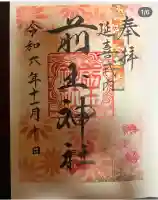 奉拝
延喜式内
前玉神社
令和六年十一月十日
1/6